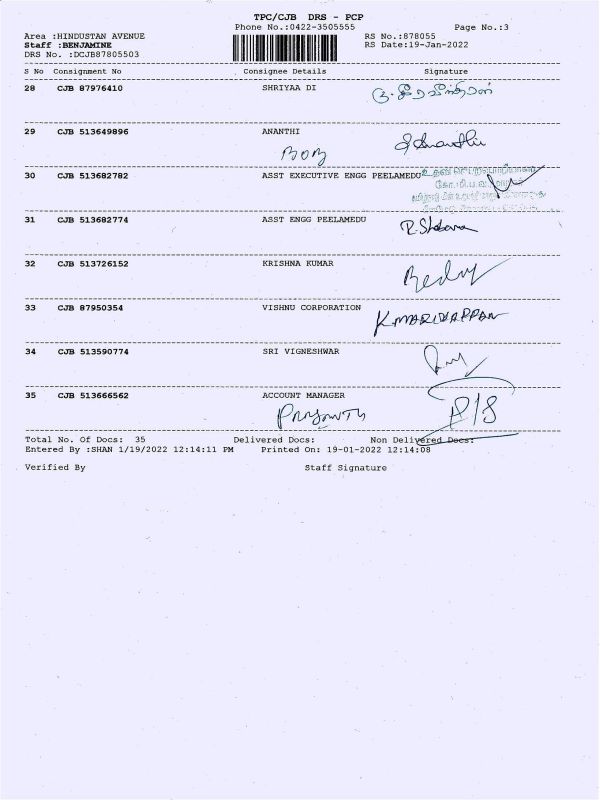 TPC/CJB DRS - PCP
Phone No.:0422-3505555 Page No.:3
Area :HINDUSTAN AVENUE RS No.:878055
Staff :BENJAMINE RS Date:19-Jan-2022
DRS No. :DCJB87805503
S No Consignment No Consignee Details Signature
28 CJB 87976410 SHRIYAA DI
29 CJB 513649896 ANANTHI
BOB
30 CJB 513682782 ASST EXECUTIVE ENGG PEELAMEDU
31 CJB 513682774 ASST ENGG PEELAMEDU
32 CJB 513726152 KRISHNA KUMAR
33 CJB 87950354 VISHNU CORPORATION K.MARIYAPPAN
34 CJB 513590774 SRI VIGNESHWAR
35 CJB 513666562 ACCOUNT MANAGER
PRASANTH
Total No. Of Docs: 35 Delivered Docs: Non Delivered Docs:
Entered By :SHAN 1/19/2022 12:14:11 PM Printed On: 19-01-2022 12:14:08
Verified By Staff Signature